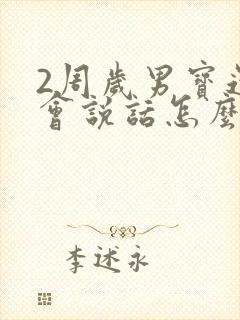 2周歲男寶還
會說話怎麼
李述永